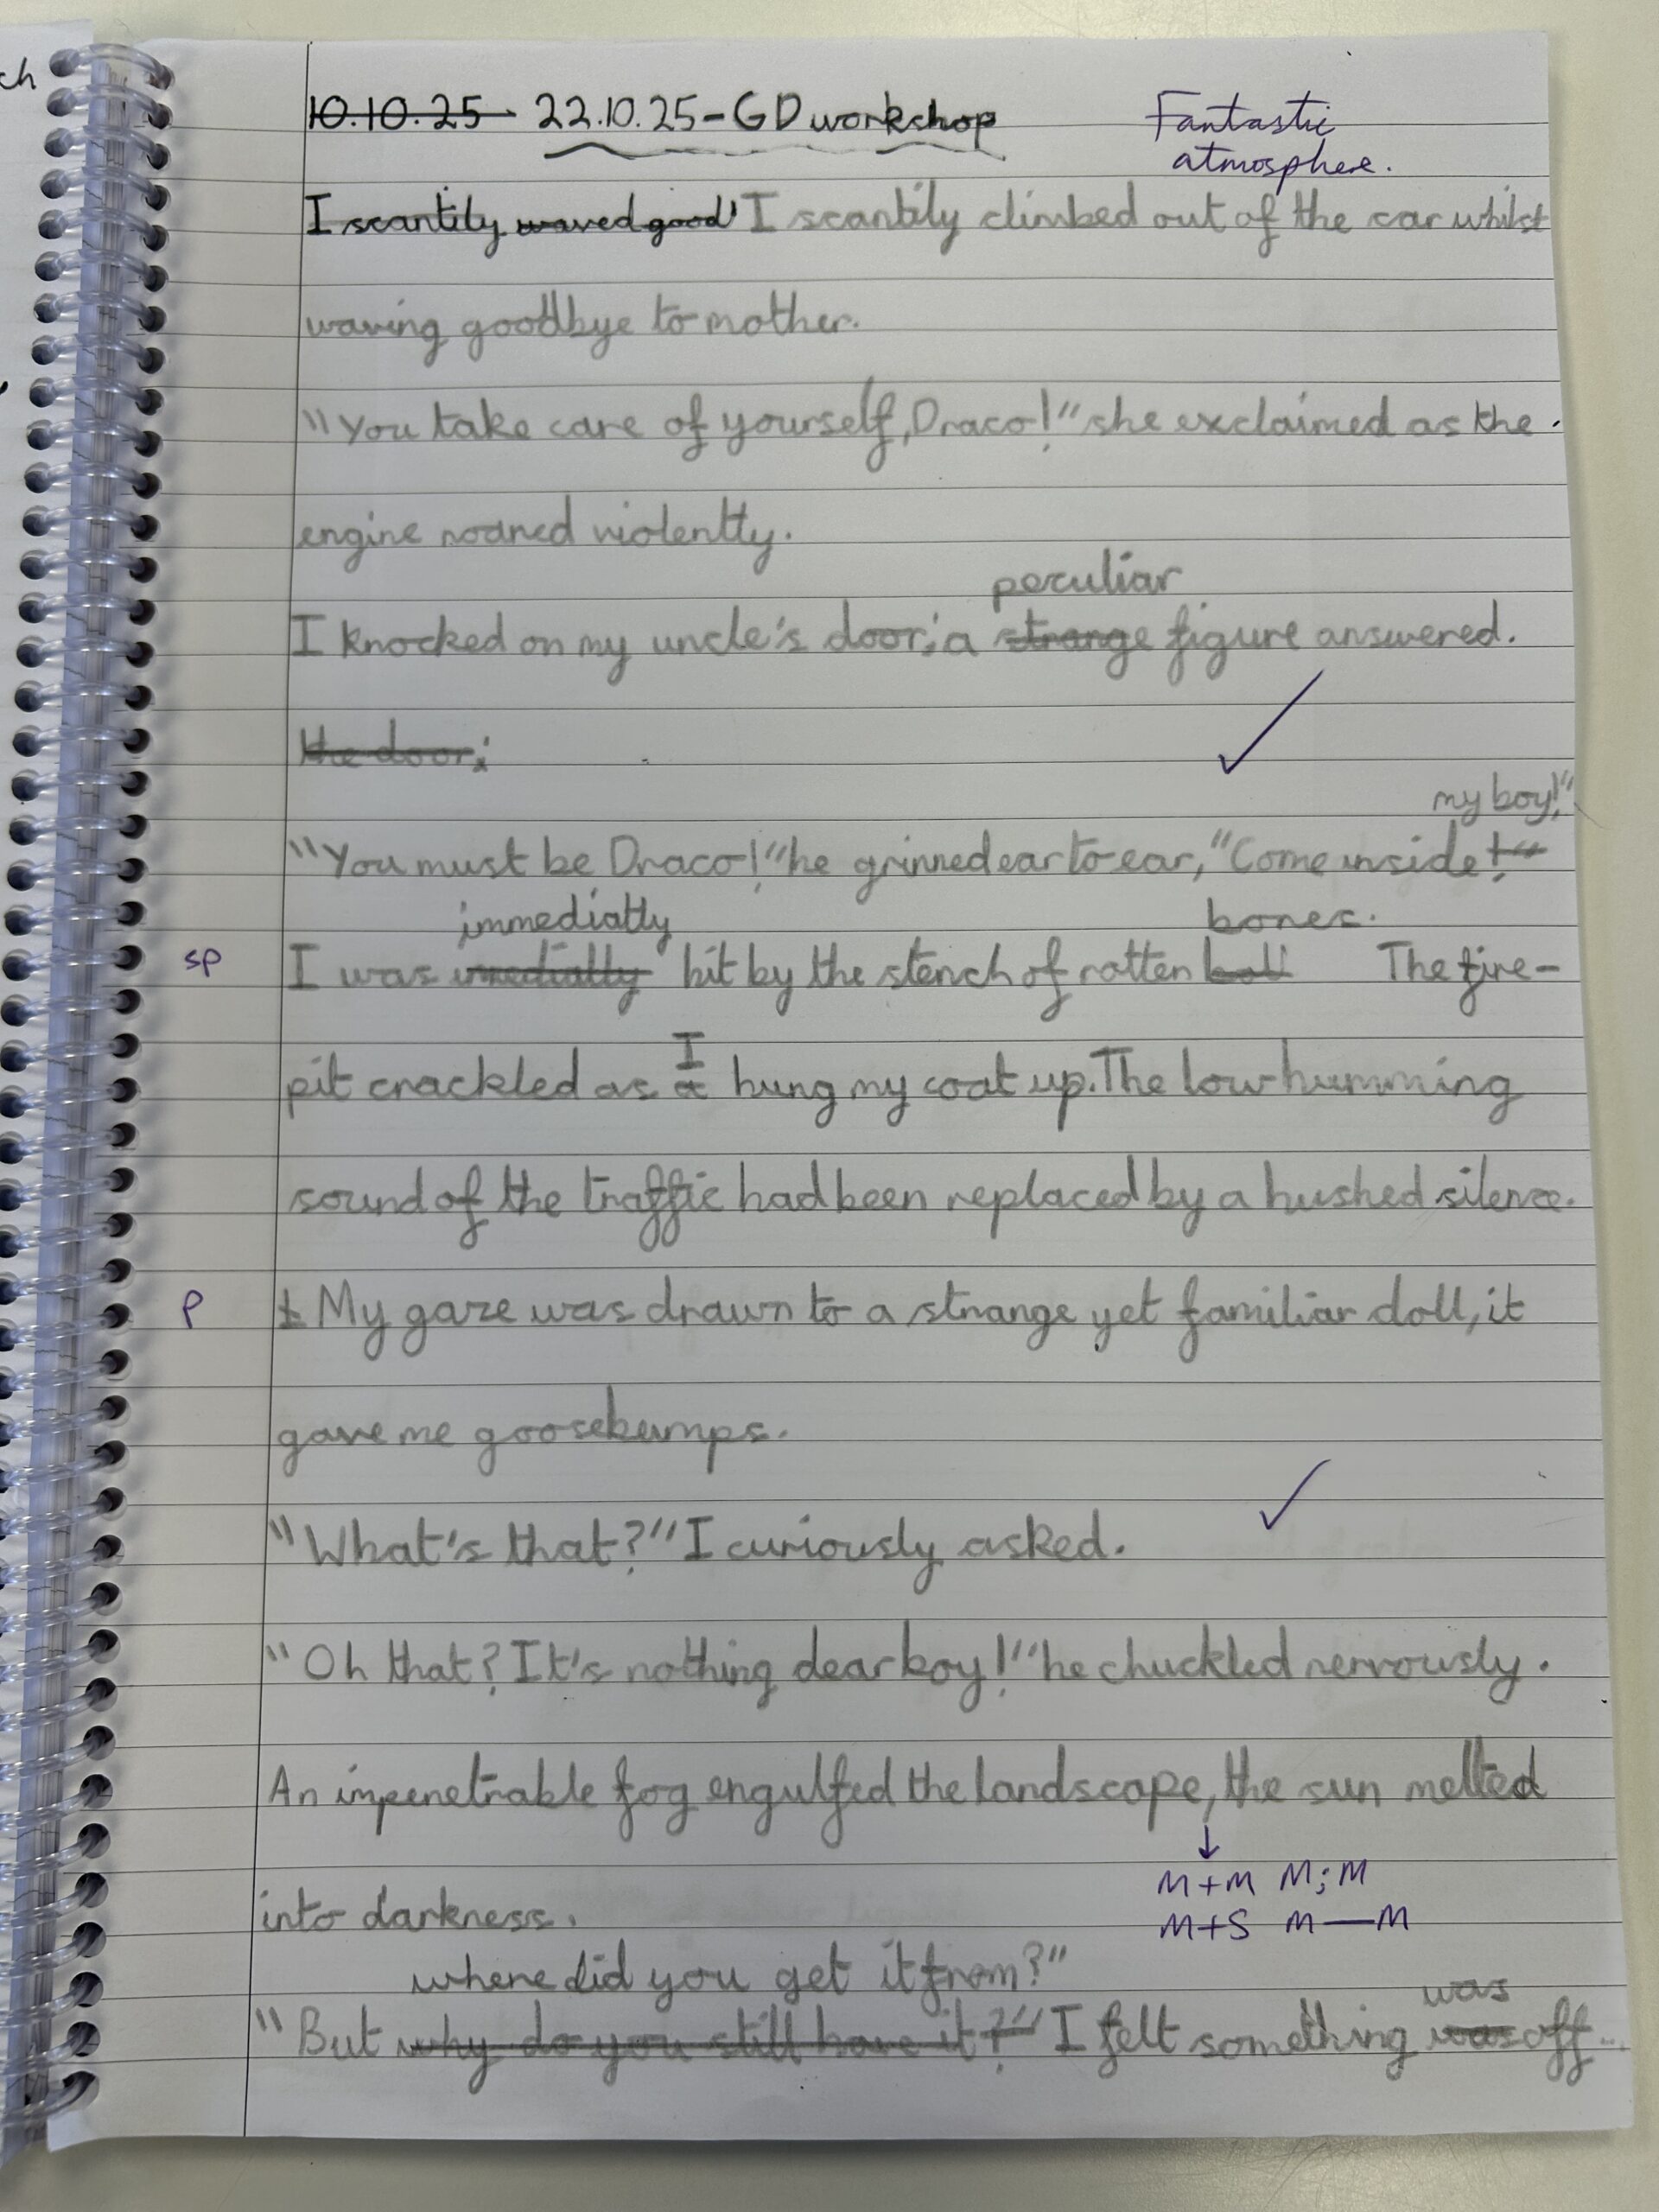 ch
10.10.25 22.10.25-GD workshop
Fantastic
atmosphere.
I scantily waved good' I scantily climbed out of the car whilst
waving goodbye to mother.
"You take care of yourself, Draco!" she exclaimed as the
engine roared violently.
peculiar
I knocked on my uncle's door; a strange figure answered.
the door;
my boy!"
"You must be Draco!" he grinned ear to ear, "Come inside!"
immediatly bones.
sp I was imediatly hit by the stench of rotten The fire-
I
pit crackled as a hung my coat up. The low humming
sound of the traffic had been replaced by a hushed silence.
p My gaze was drawn to a strange yet familiar doll, it
gave me goosebumps.
"What's that?" I curiously asked.
"Oh that? It's nothing dear boy!" he chuckled nervously.
An impenetrable fog engulfed the landscape, the sun melted
↓
M+M M;M
into darkness. M+S M—M
where did you get it from?"
was
"But why do you still have it?" I felt something was off...